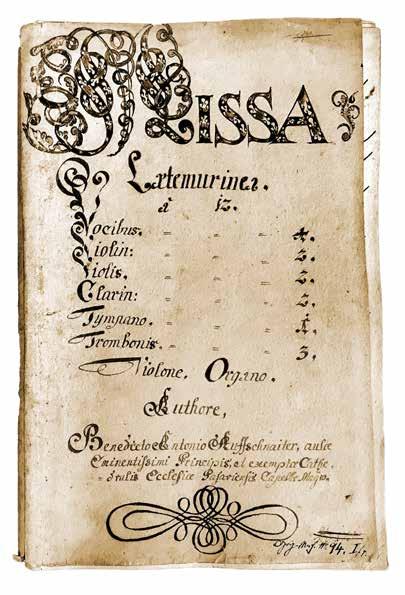 MISSA
à 12.
Vocibus. = = = 4.
Violin: = = = 2.
Violis. = = = 2.
Clarin: = = = 2.
Tympano. = = = 1.
Trombonis. = = = 3.
Violone. Organo.
Authore,
Benedicto Antonio Auffschnaiter, aulæ
Eminentissimi Principis, et exemptæ Cathe-
= dralis Ecclesiæ Passaviensis Capellæ Magro.
94.